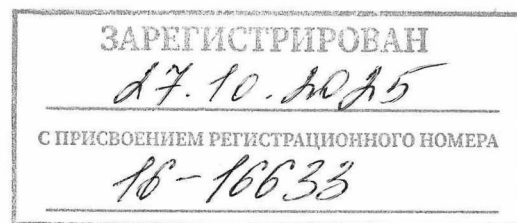 ЗАРЕГИСТРИРОВАН
27.10.2025
С ПРИСВОЕНИЕМ РЕГИСТРАЦИОННОГО НОМЕРА
16-16633